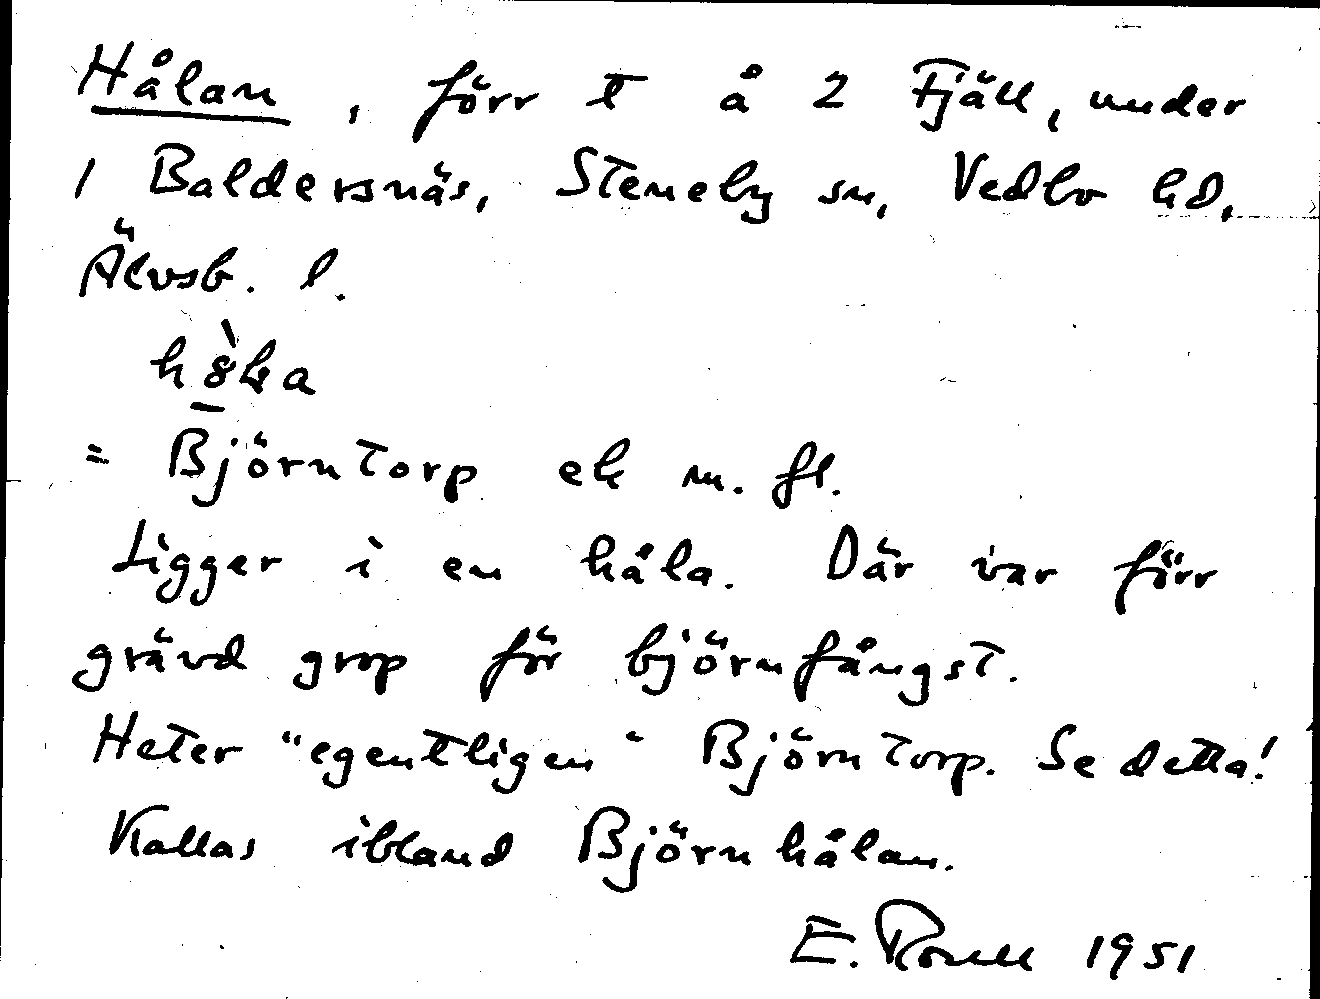 Hålan, förr t å 2 Fjäll, under
1 Baldersnäs, Steneby sn, Vedbo hd,
Älvsb. l.
= Björntorp ek m. fl.
Ligger i en håla. Där var förr
grävd grop för björnfångst.
Heter "egentligen" Björntorp. Se detta!
Kallas ibland Björnhålan.
E. 1951